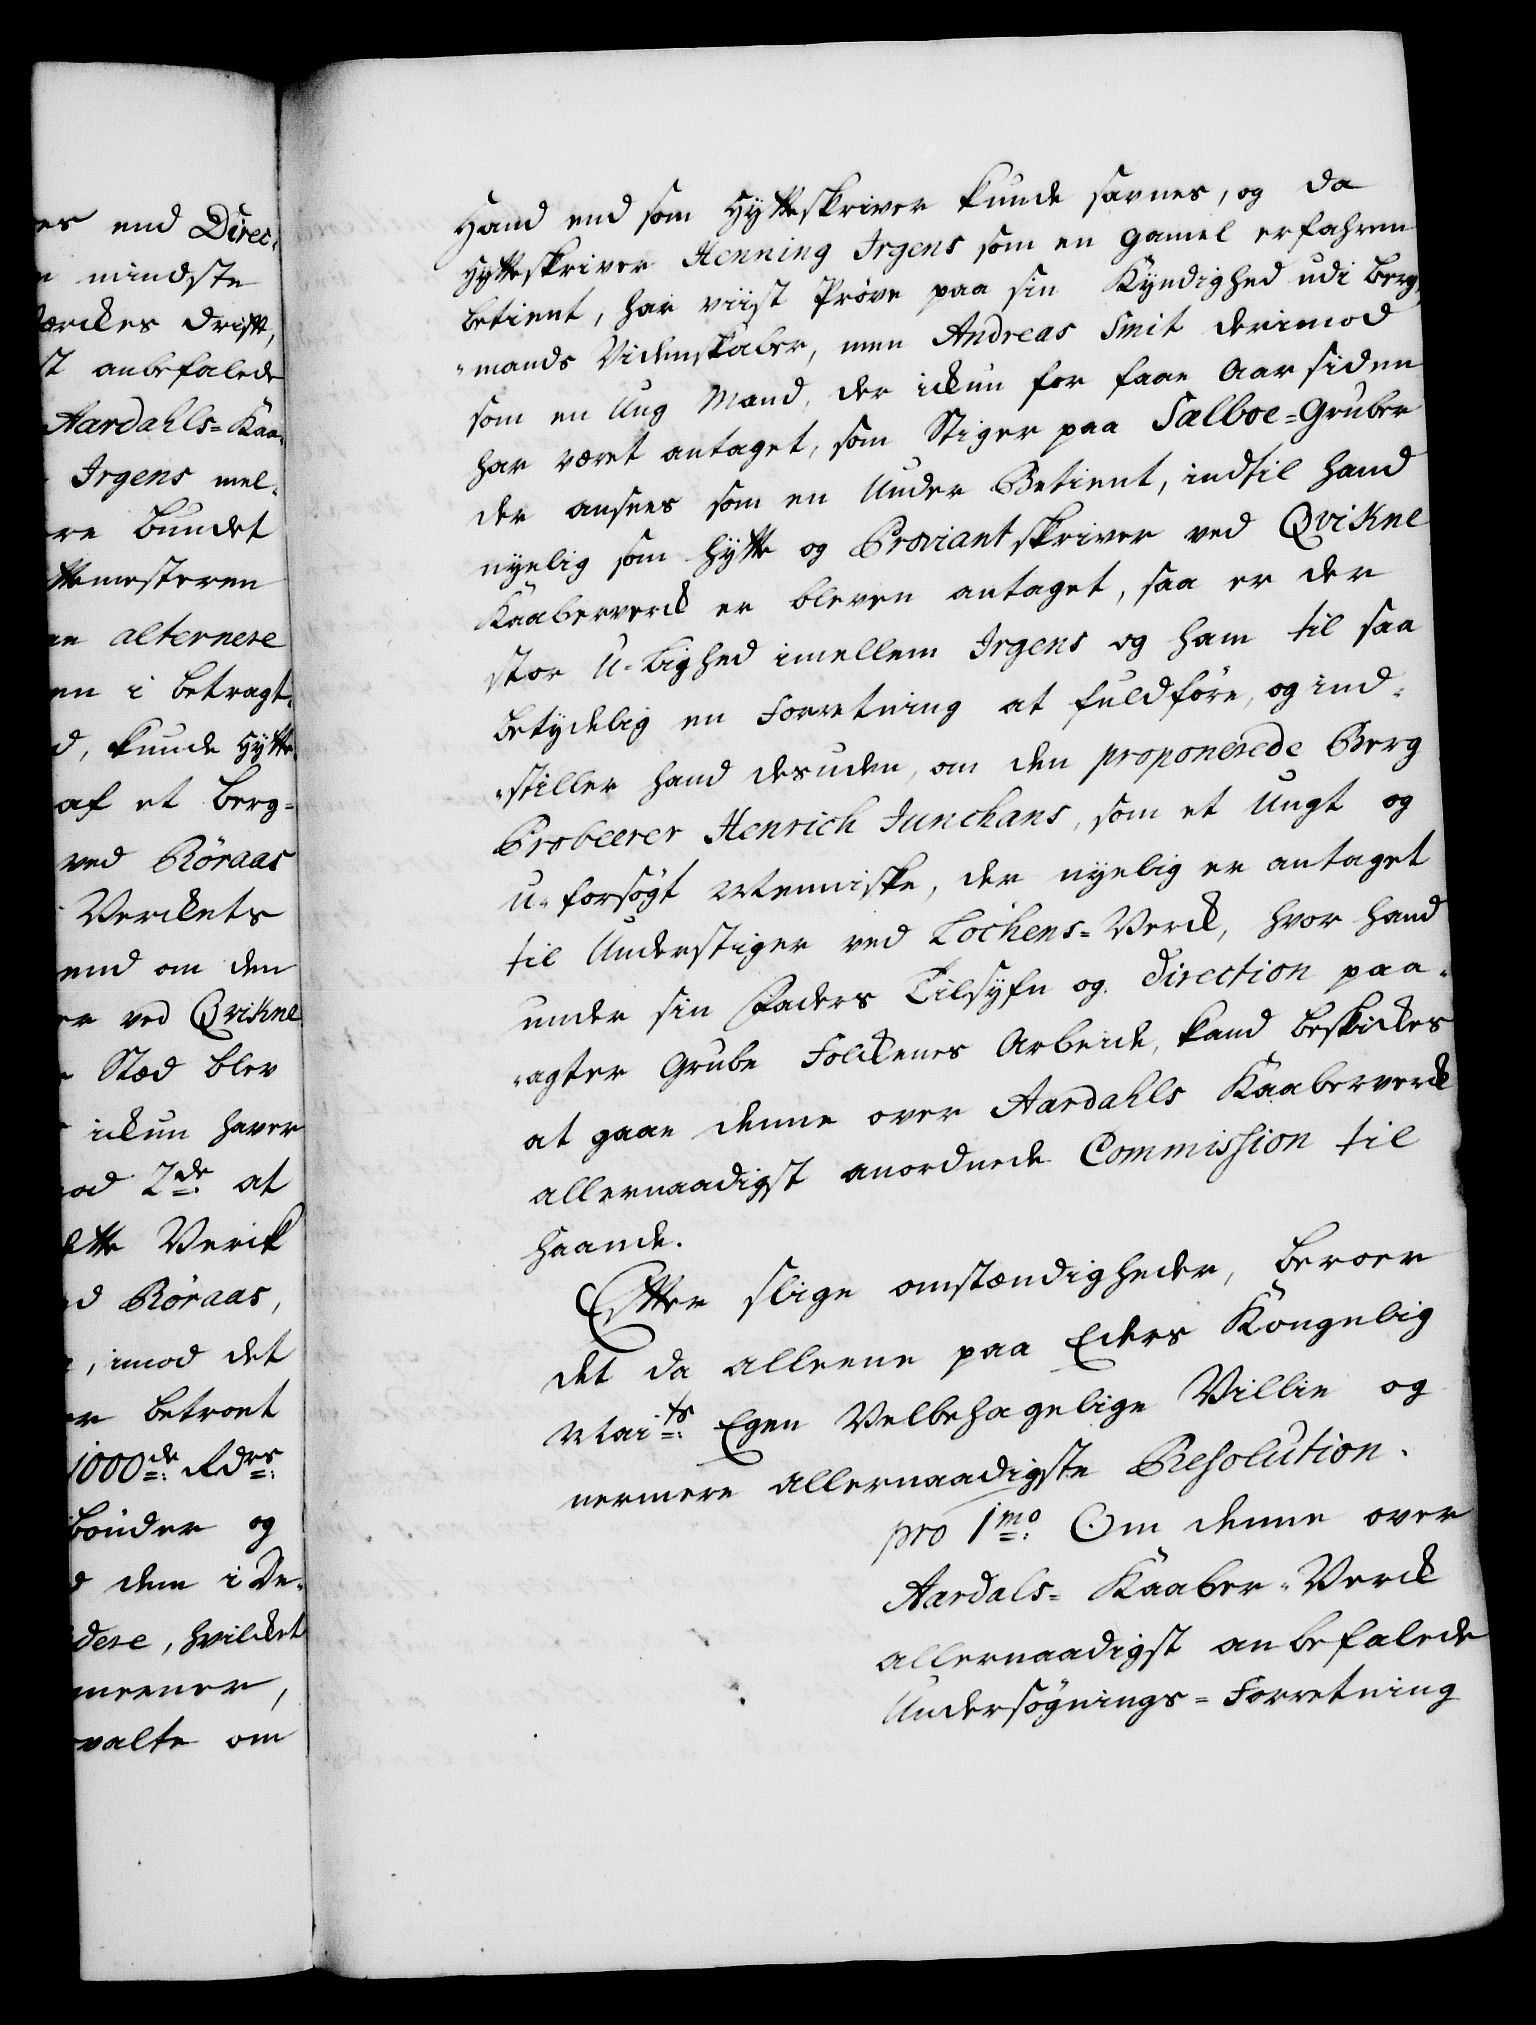 es end Direc„
mindste
værckes drift,
st anbefalede
Aardahls=Kaa„
Irgens mel„
re bundet
ttemesteren
an alternere
en i betragt„
d, kunde Hytte„
af et Berg=
ved Röraas
Verckets
end om den
er ved Qvikne
Stæd blev
ickun haver
od 2de at
ette Verck
ed Röraas,
, imod det
er betroet
1000de Rdrs
bönder og
d dem i De„
dere, hvilcket
meener,
valte om
Hand end som Hytteskriver kunde savnes, og da
Hytteskriver Henning Irgens som en gamel erfahren
betient, har viist Prøve paa sin Kyndighed udi berg„
„mands Videnskaber, men Andreas Smit derimod
som en Ung Mand, der ickun for faae Aar siden
har været antaget, som Stiger paa Sælboe=Gruber
der ansees som en Under Betient, indtil hand
nyelig som Hytte og Proviantskriver ved Qvikne
Kaaberverck er bleven antaget, saa er der
stor U-liighed imellem Irgens og ham til saa
betydelig en Forretning at fuldföre, og ind„
„stiller hand desuden, om den proponerede Berg
Probeerer Henrich Junchans, som et Ungt og
U-forsögt Menniske, der nyelig er antaget
til Understiger ved Löchens=Verck, hvor hand
under sin Faders Tilsyfn og direction paa„
„agter Grube Folckenes Arbeide, kand beskickes
at gaae denne over Aardahls Kaaberverck
allernaadigst anordnede Commission til
Haande.
Efter slige omstændigheder, beroer
det da alleene paa Eders Kongelig
Maits Egen Velbehagelige Villie og
nermere allernaadigste Resolution.
pro 1mo Om denne over
Aardals=Kaaber=Verck
allernaadigst anbefalede
Undersögnings=Forretning